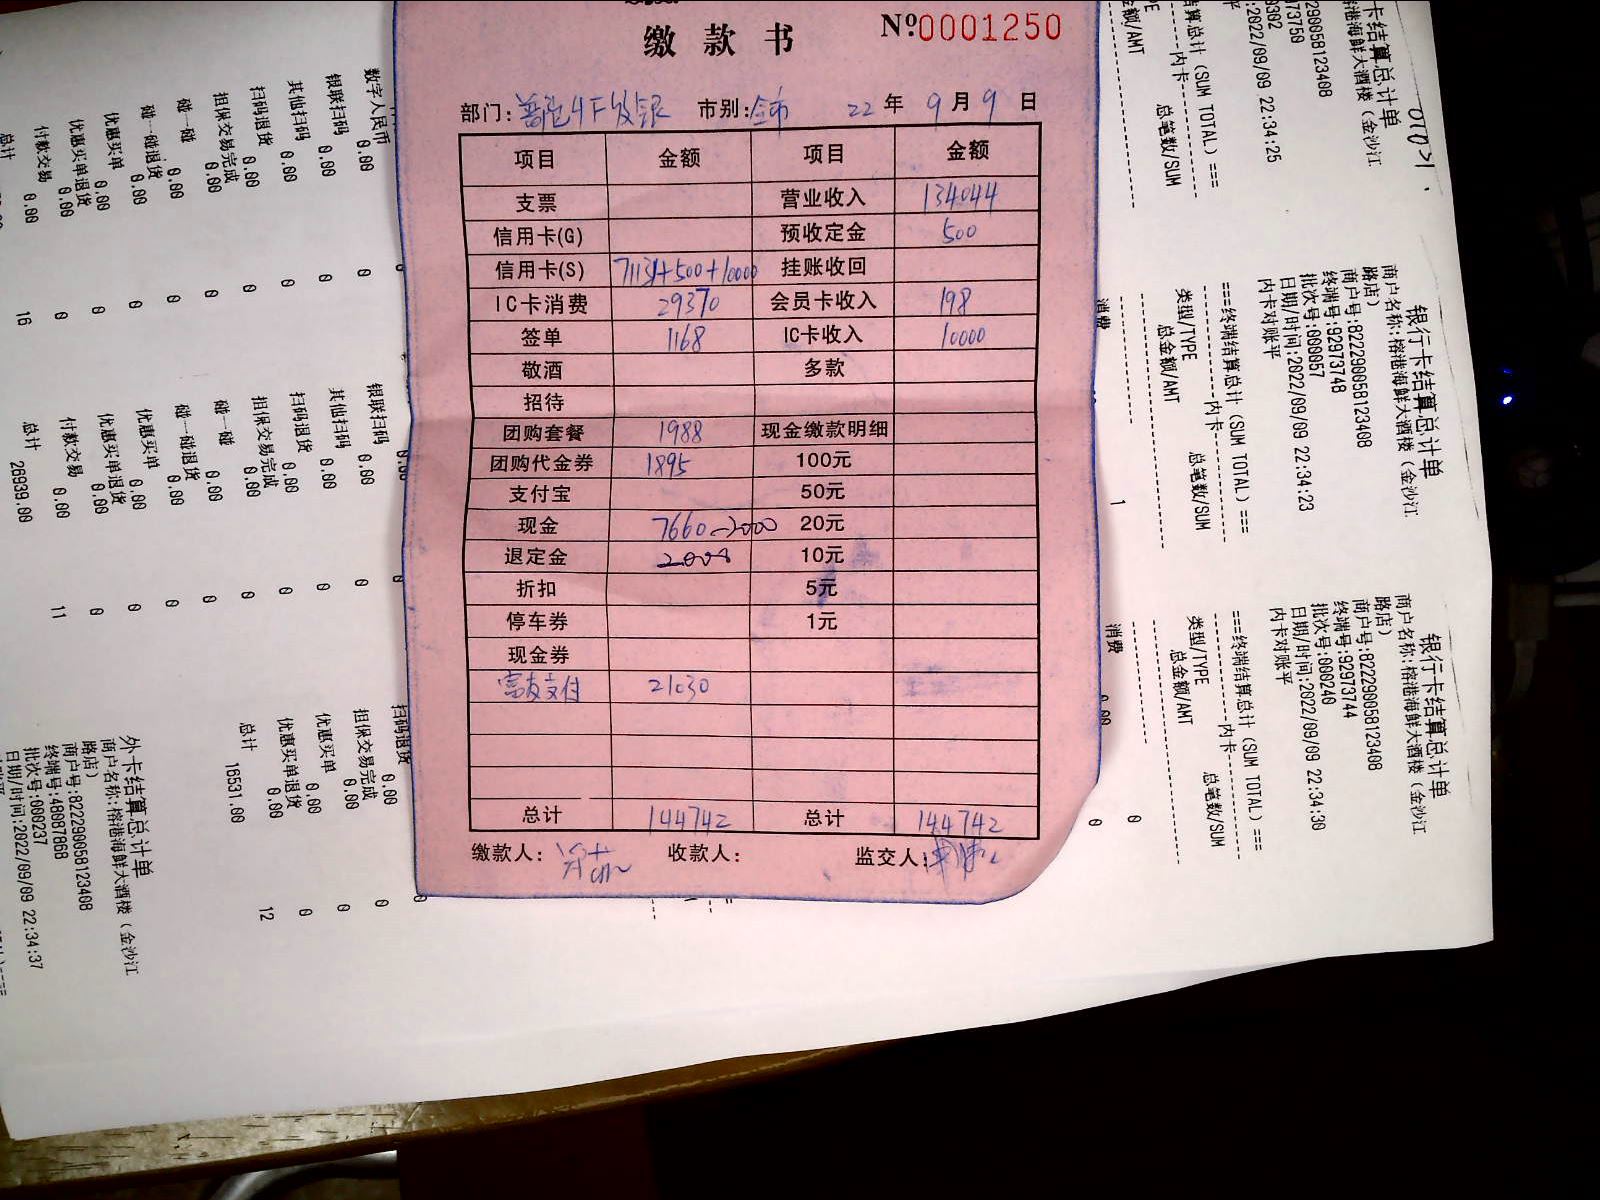 缴款书 №0001250
部门: 市别: 22年9月9日
项目 金额 项目 金额
支票 营业收入 134044
信用卡(G) 预收定金 500
信用卡(S) 71131+500+10000 挂账收回
IC卡消费 29370 会员卡收入 198
签单 1168 IC卡收入 10000
敬酒 多款
招待
团购套餐 1988 现金缴款明细
团购代金券 1895 100元
支付宝 50元
现金 7660-2000 20元
退定金 2000 10元
折扣 5元
停车券 1元
现金券
富友支付 21030
总计 144742 总计 144742
缴款人: 收款人: 监交人:
数字人民币 0.00
银联扫码 0.00 0
其他扫码 0.00 0
扫码退货 0.00 0
担保交易完成 0.00 0
碰一碰 0.00 0
碰一碰退货 0.00 0
优惠买单 0.00 0
优惠买单退货 0.00 0
付款交易 0.00 0
总计 16
银联扫码 0.00 0
其他扫码 0.00 0
扫码退货 0.00 0
担保交易完成 0.00 0
碰一碰 0.00 0
碰一碰退货 0.00 0
优惠买单 0.00 0
优惠买单退货 0.00 0
付款交易 0.00 0
总计 26939.00 11
扫码退货 0.00
担保交易完成 0.00 0
优惠买单 0.00 0
优惠买单退货 0.00 0
总计 16531.00 12
外卡结算总计单
商户名称:榕港海鲜大酒楼(金沙江
路店)
商户号:822290058123408
终端号:48087868
批次号:000237
日期/时间:2022/09/09 22:34:37
卡结算总计单
海鲜大酒楼(金沙江
2290058123408
73750
0302
:2022/09/09 22:34:25
平
算总计(SUM TOTAL)===
内卡
PE 总笔数/SUM
金额/AMT
银行卡结算总计单
商户名称:榕港海鲜大酒楼(金沙江
路店)
商户号:822290058123408
终端号:92973748
批次号:000057
日期/时间:2022/09/09 22:34:23
内卡对账平
===终端结算总计(SUM TOTAL)===
内卡
类型/TYPE 总笔数/SUM
总金额/AMT
消费 1
银行卡结算总计单
商户名称:榕港海鲜大酒楼(金沙江
路店)
商户号:822290058123408
终端号:92973744
批次号:000240
日期/时间:2022/09/09 22:34:30
内卡对账平
===终端结算总计(SUM TOTAL)===
内卡
类型/TYPE 总笔数/SUM
总金额/AMT
消费 0.00 0